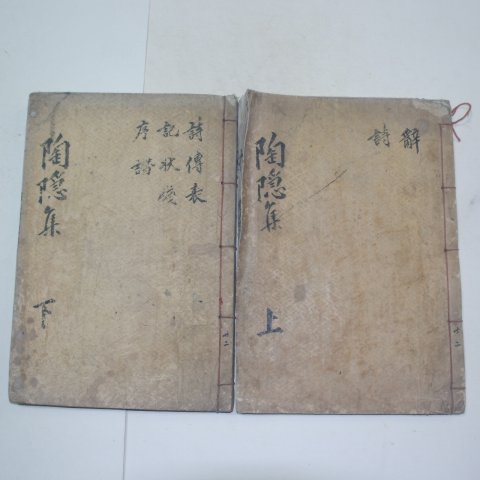 辭
詩
陶隱集
上
詩傳表
記狀
序
陶隱集
下